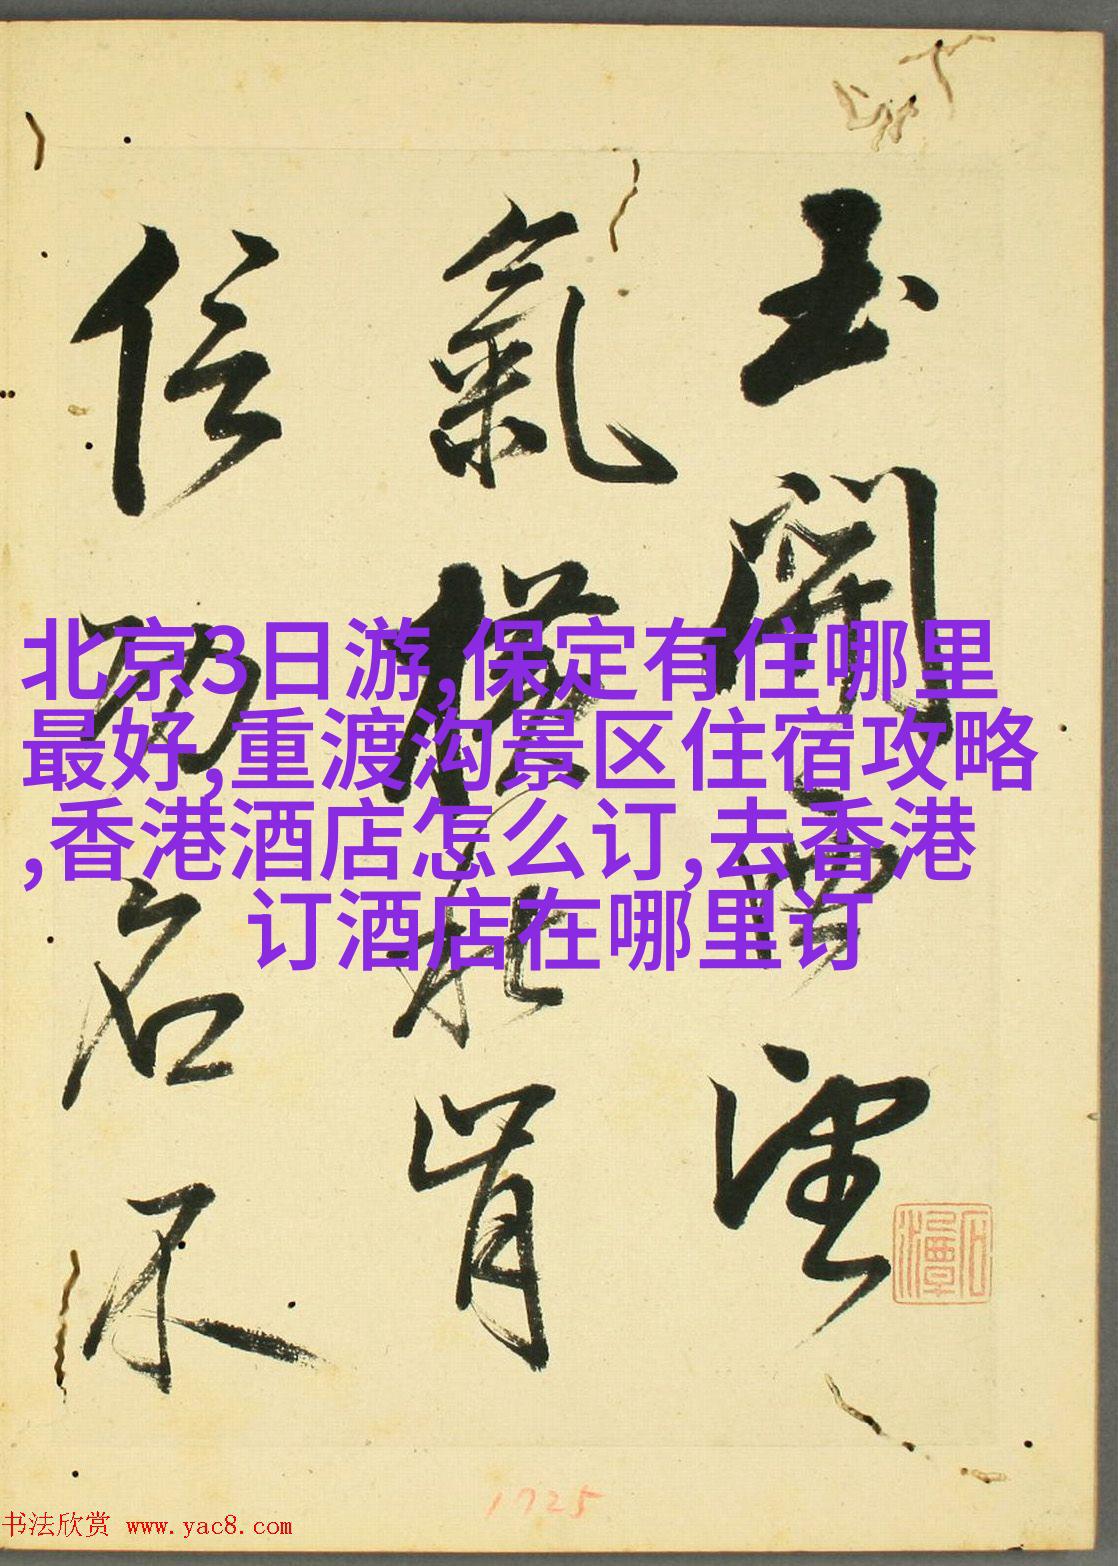 玉關西望
氣橫秋肯
信功名不
北京3日游,保定有住哪里
最好,重渡沟景区住宿攻略
,香港酒店怎么订,去香港
订酒店在哪里订
1725
书法欣赏 www.yac8.com